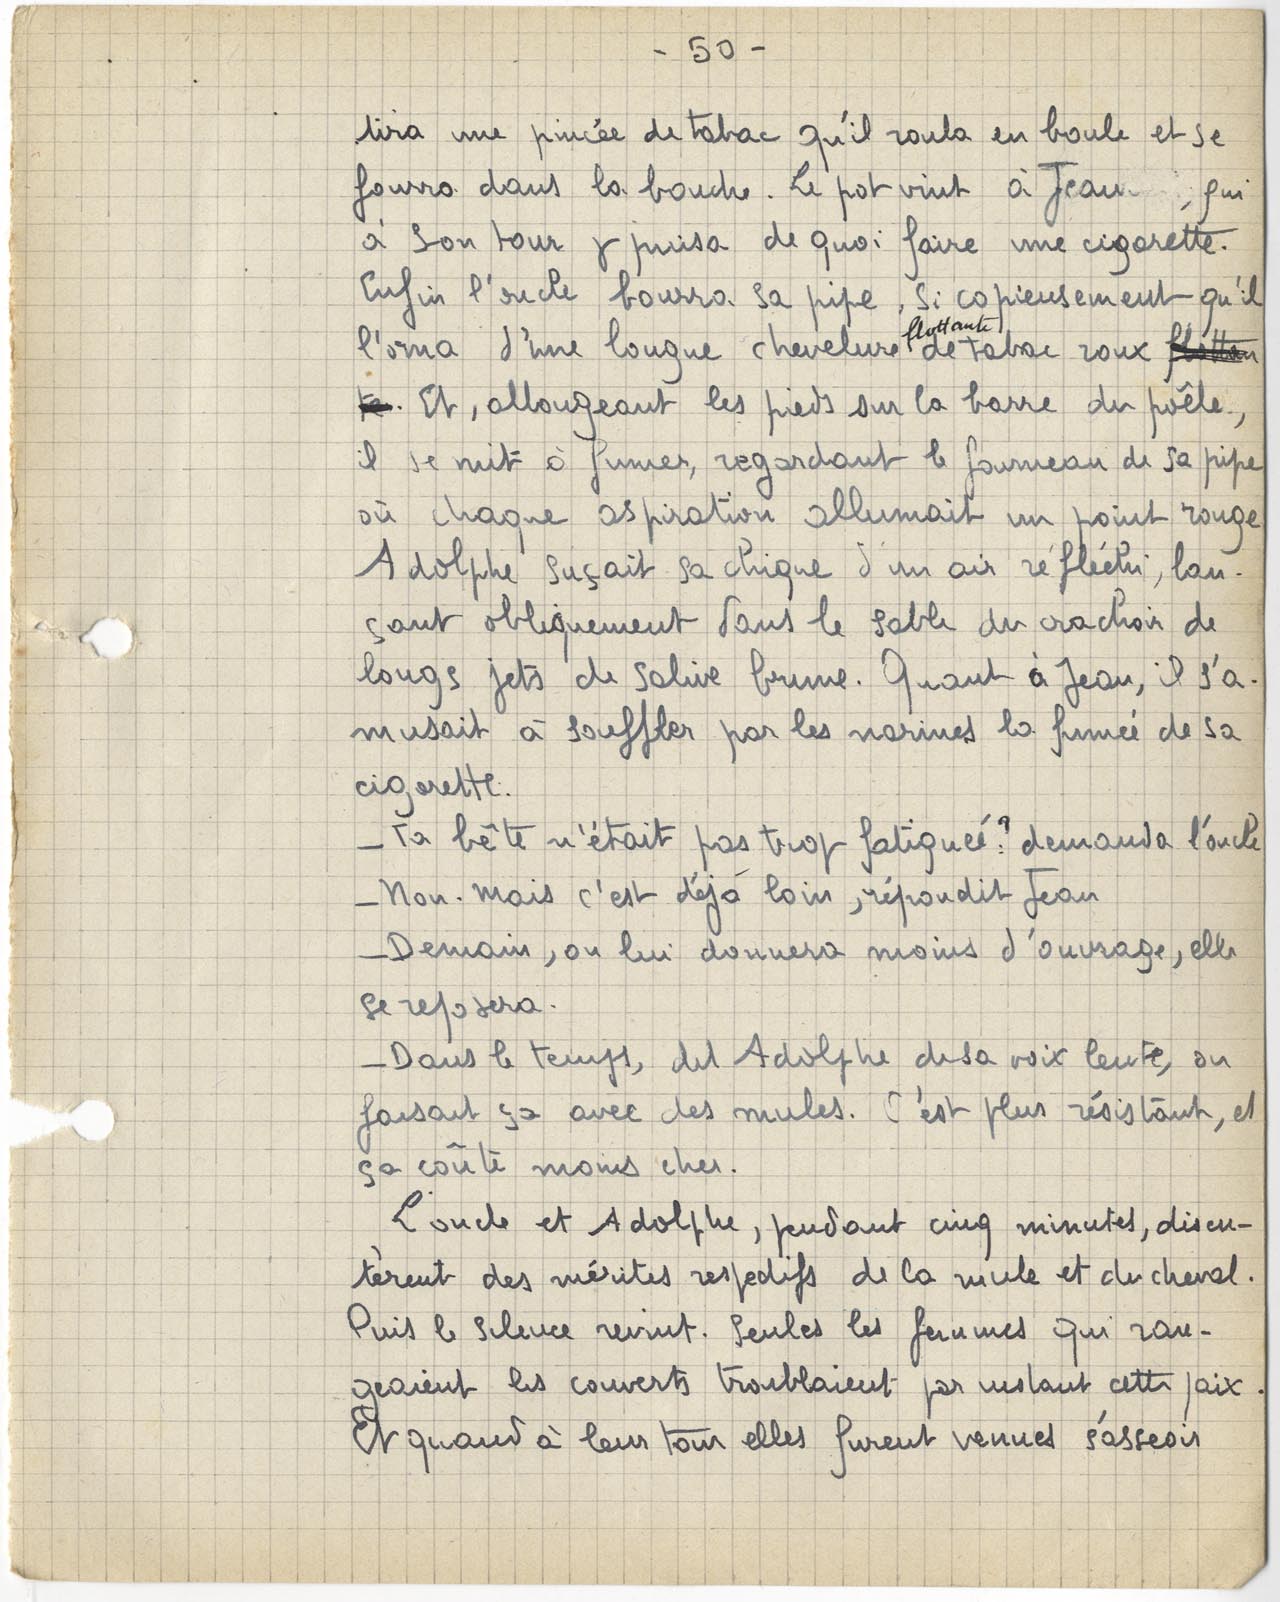 - 50 -
tira une pincée de tabac qu'il roula en boule et se
fourra dans la bouche. Le pot vint à Jean, qui
à son tour y puisa de quoi faire une cigarette.
Enfin l'oncle bourra sa pipe, si copieusement qu'il
l'orna d'une longue chevelure flottante de tabac roux flottan
te. Et, allongeant les pieds sur la barre du poêle,
il se mit à fumer, regardant le fourneau de sa pipe
où chaque aspiration allumait un point rouge
Adolphe suçait sa chique d'un air réfléchi, lan-
çant obliquement dans le sable du crachoir de
longs jets de salive brune. Quant à Jean, il s'a-
musait à souffler par les narines la fumée de sa
cigarette.
_ Ta bête n'était pas trop fatiguée? demanda l'oncle
_ Non. Mais c'est déjà loin, répondit Jean
_ Demain, on lui donnera moins d'ouvrage, elle
se reposera.
_ Dans le temps, dit Adolphe de sa voix lente, on
faisait ça avec des mules. C'est plus résistant, et
ça coûte moins cher.
L'oncle et Adolphe, pendant cinq minutes, discu-
tèrent des mérites respectifs de la mule et du cheval.
Puis le silence revint. Seules les femmes qui ran-
geaient les couverts troublaient par instant cette paix.
Et quand à leur tour elles furent venues s'asseoir